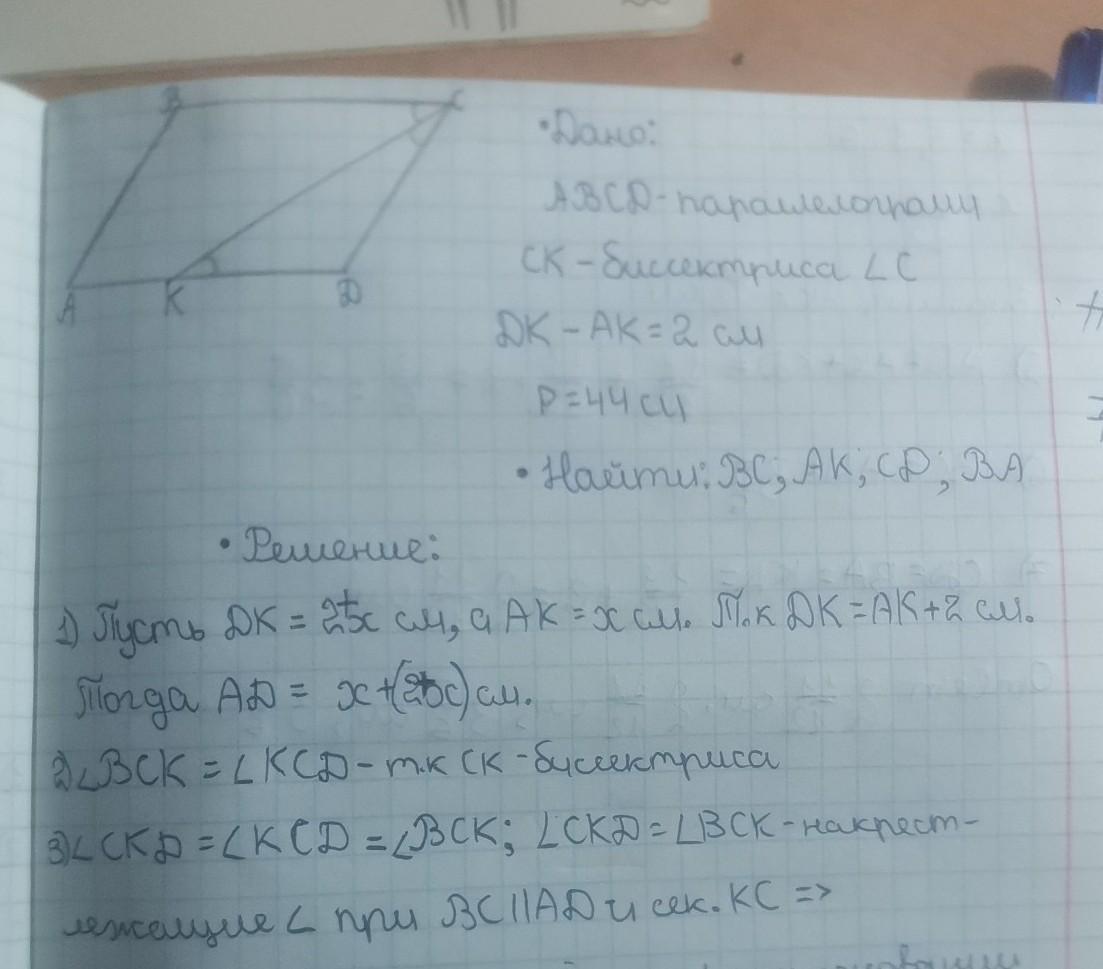 B
C
A
K
D
• Дано:
ABCD - параллелограмм
CK - биссектриса ∠C
DK - AK = 2 см
P = 44 см
• Найти: BC; AK; CD; BA
• Решение:
1) Пусть DK = 2+x см, а AK = x см. Т.к DK = AK + 2 см.
Тогда AD = x + (2+x) см.
2) ∠BCK = ∠KCD - т.к CK - биссектриса
3) ∠CKD = ∠KCD = ∠BCK; ∠CKD = ∠BCK - накрест-
лежащие ∠ при BC || AD и сек. KC =>